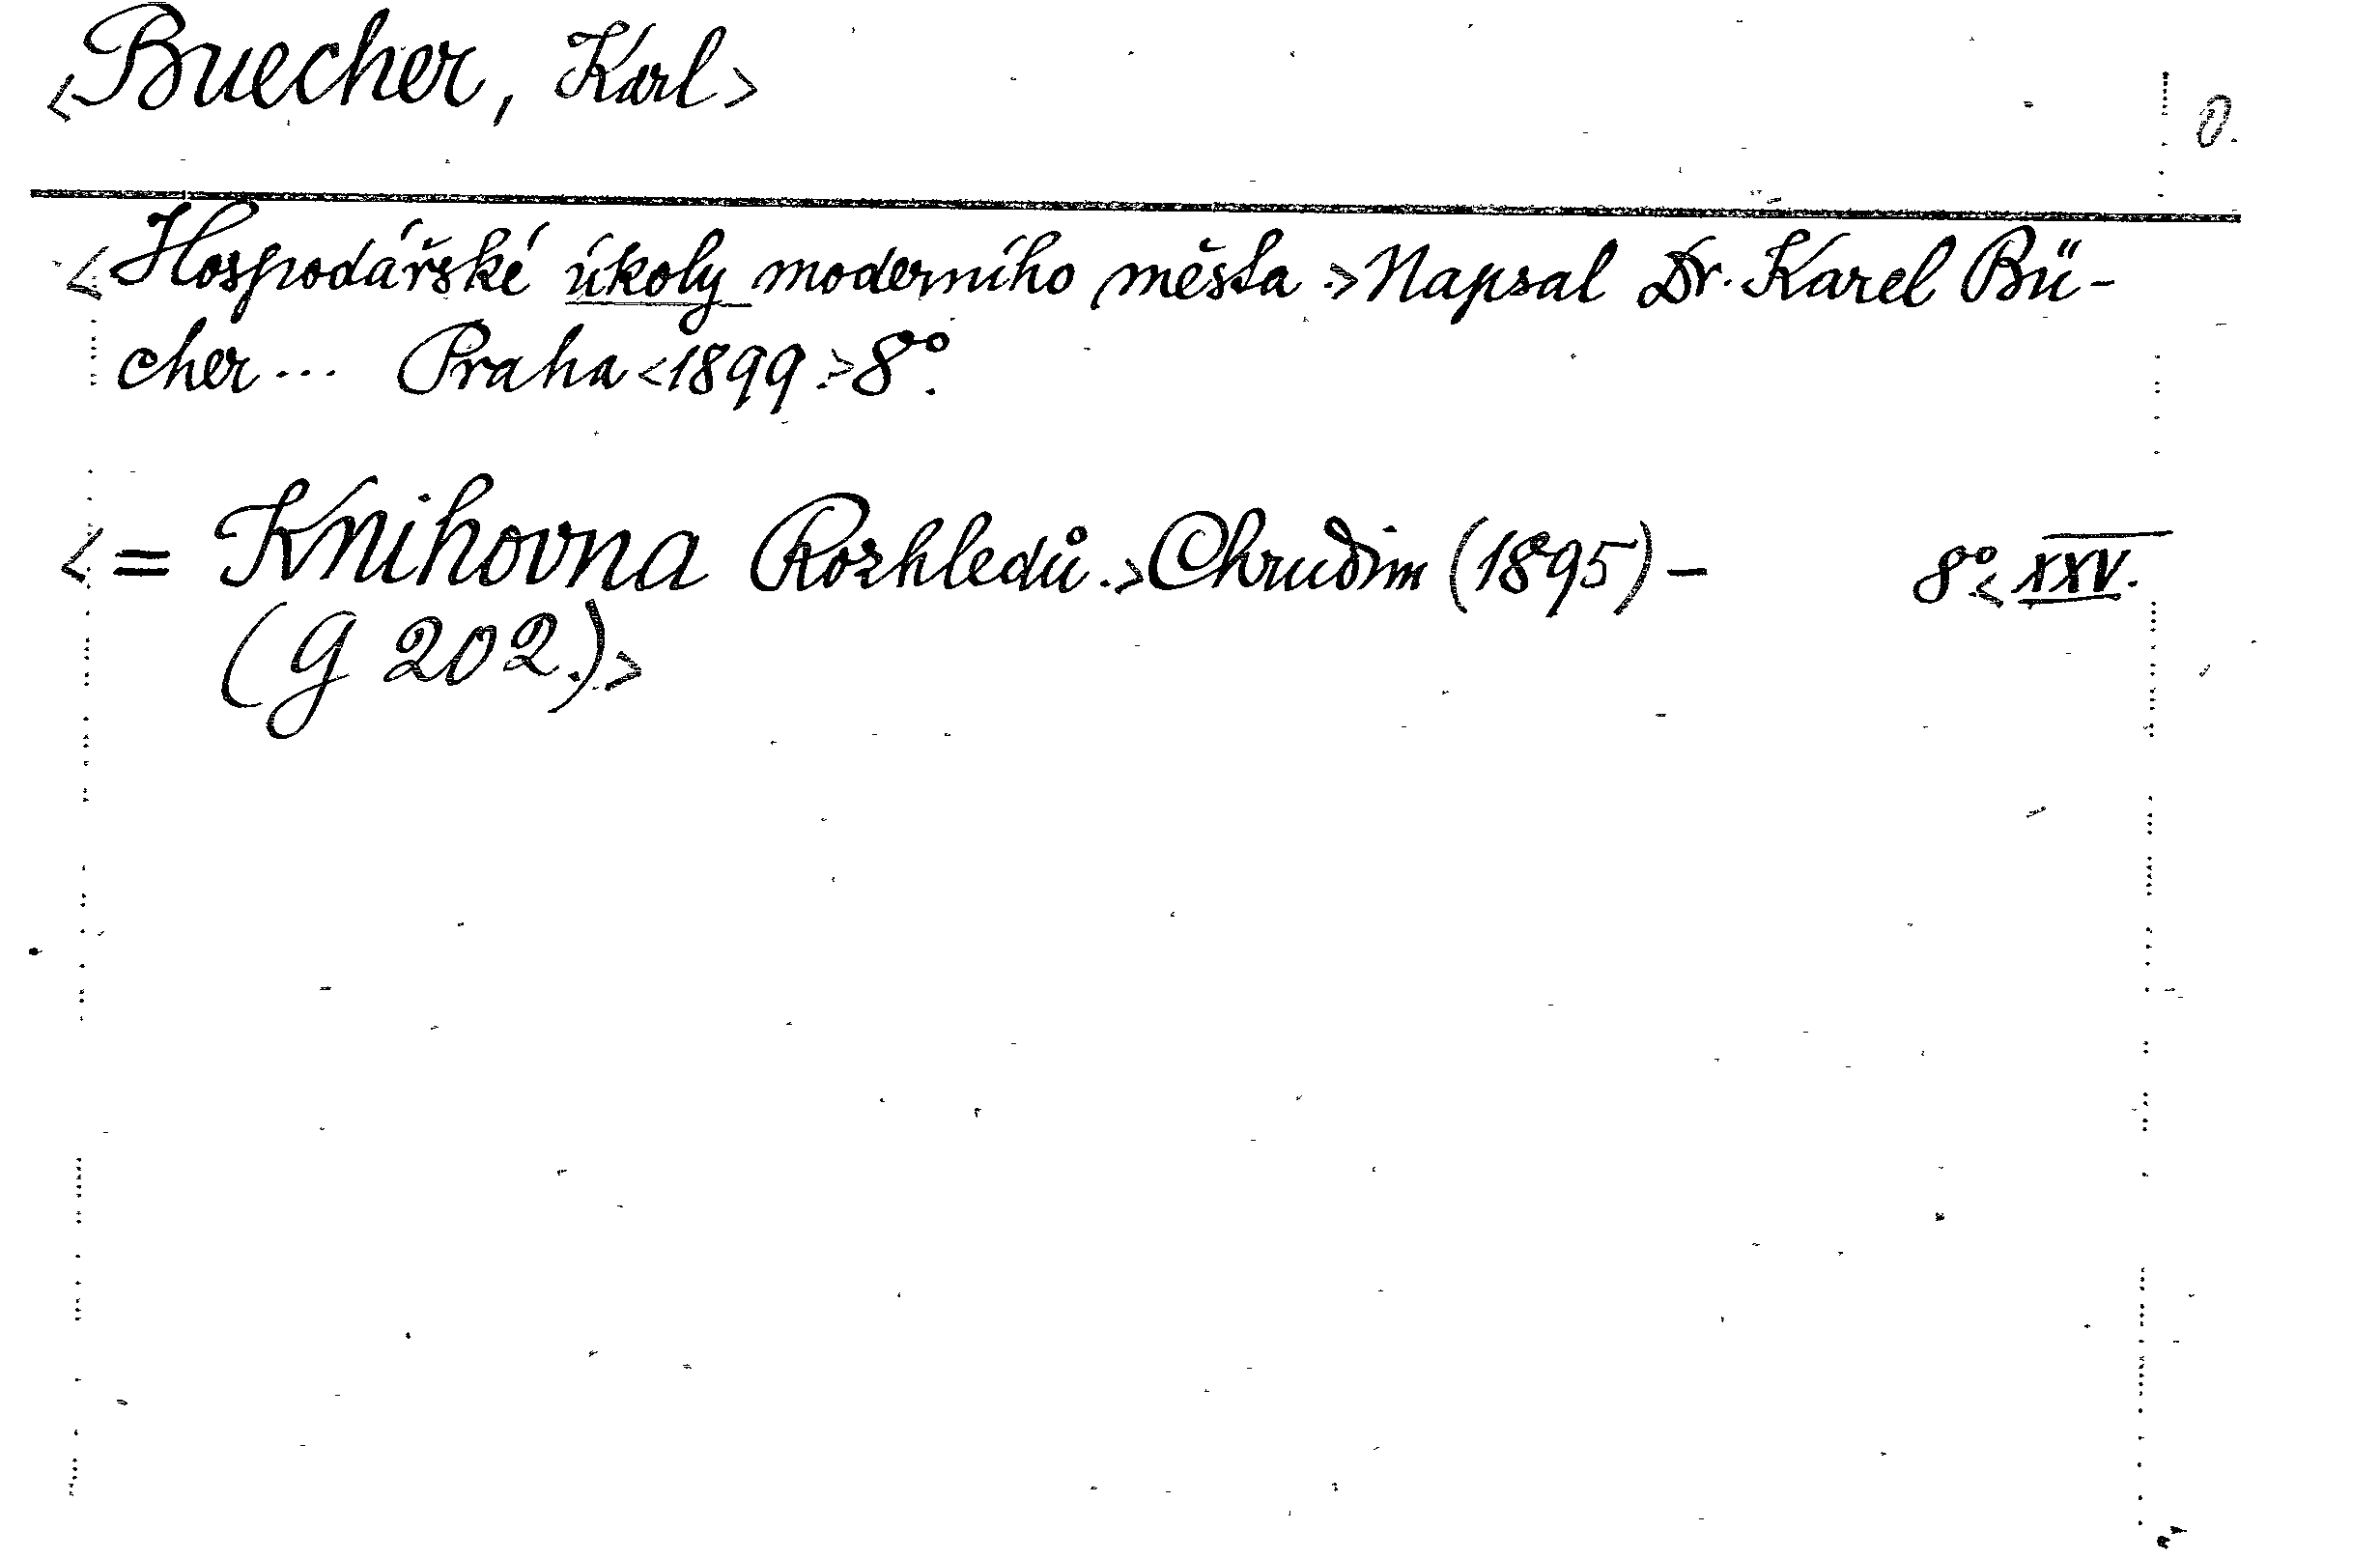 <Buecher, Karl>
O.
<Hospodářské úkoly moderního města.> Napsal Dr. Karel Bü-
cher... Praha <1899.> 8°.
<= Knihovna Rozhledů.> Chrudim (1895) - 8°. <XXV.
(G 202.)>